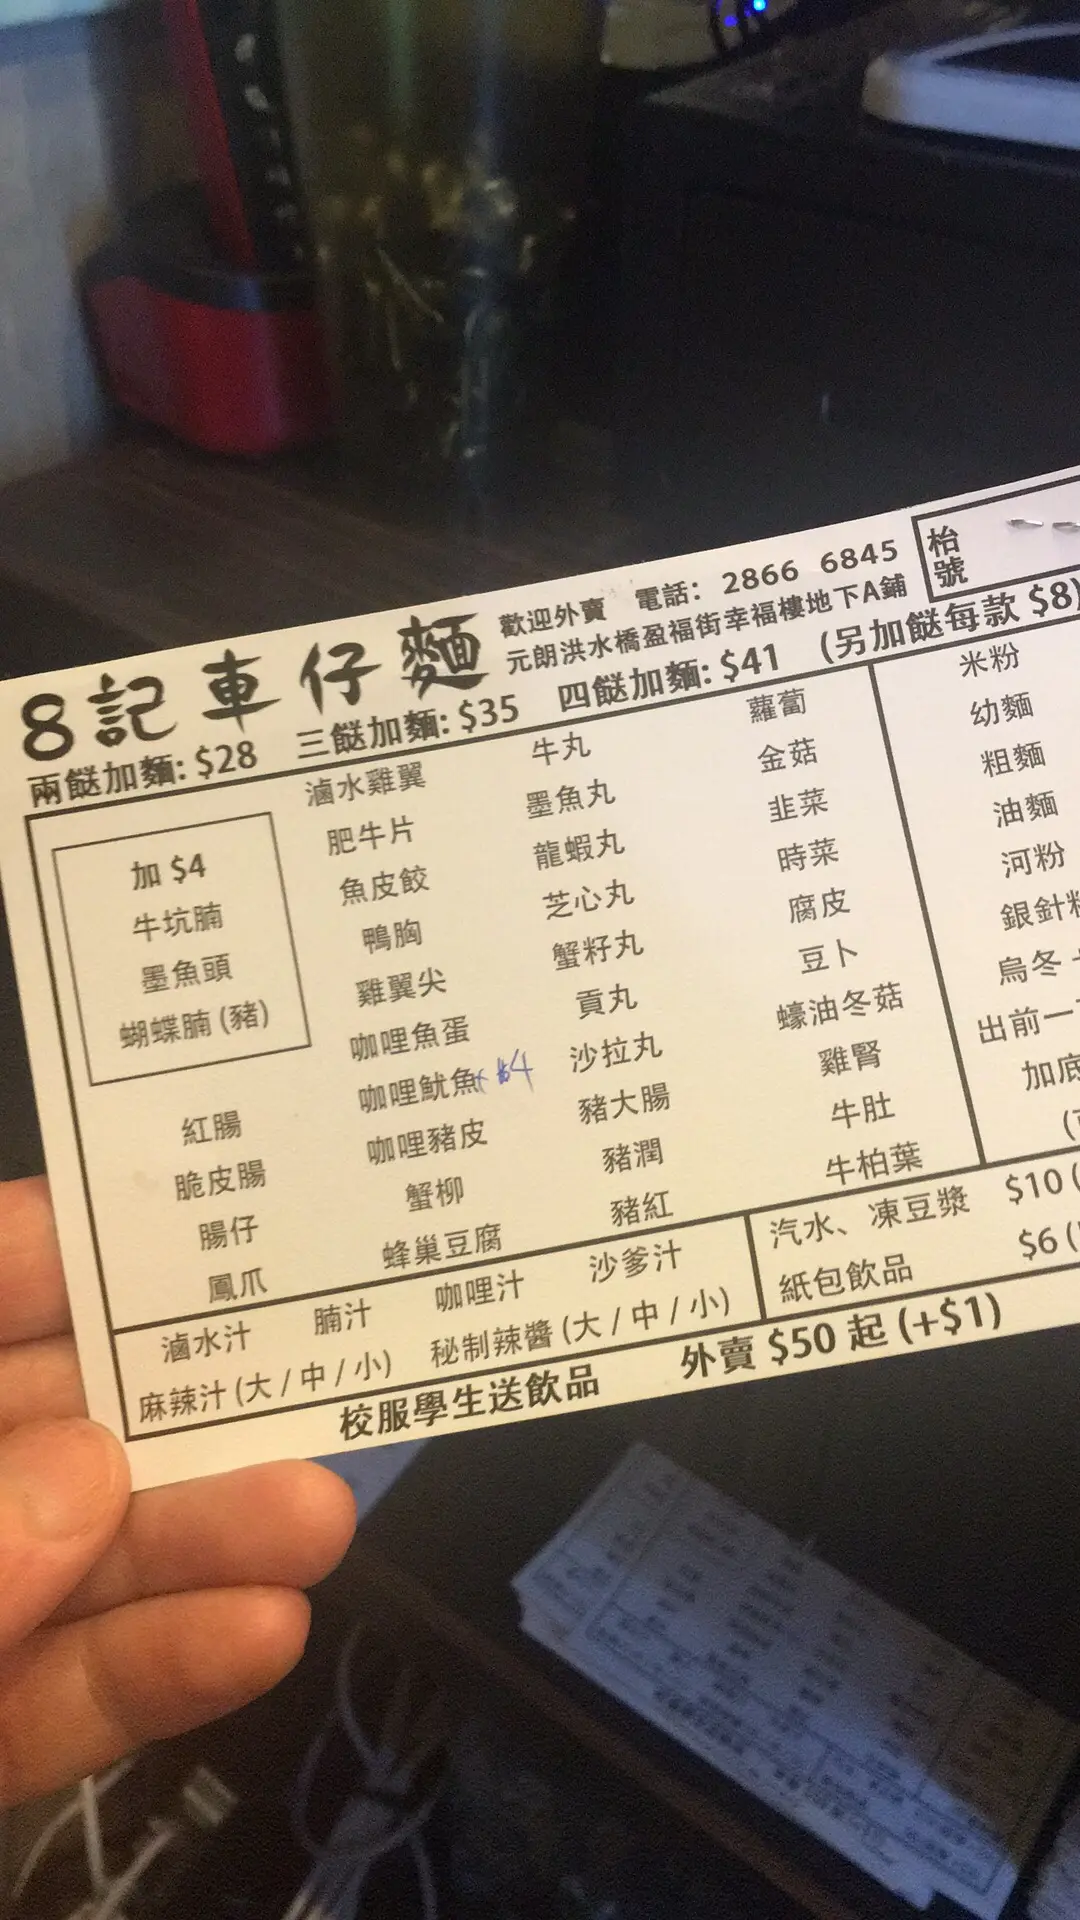 8記車仔麵
歡迎外賣 電話: 2866 6845
元朗洪水橋盈福街幸福樓地下A鋪
枱號
兩餸加麵: $28 三餸加麵: $35 四餸加麵: $41 (另加餸每款 $8)
加 $4
牛坑腩
墨魚頭
蝴蝶腩 (豬)
紅腸
脆皮腸
腸仔
鳳爪
滷水雞翼
肥牛片
魚皮餃
鴨胸
雞翼尖
咖哩魚蛋
咖哩魷魚 + $4
咖哩豬皮
蟹柳
蜂巢豆腐
牛丸
墨魚丸
龍蝦丸
芝心丸
蟹籽丸
貢丸
沙拉丸
豬大腸
豬潤
豬紅
蘿蔔
金菇
韭菜
時菜
腐皮
豆卜
蠔油冬菇
雞腎
牛肚
牛柏葉
米粉
幼麵
粗麵
油麵
河粉
銀針粉
烏冬 +
出前一
加底
滷水汁 腩汁 咖哩汁 沙爹汁
麻辣汁 (大 / 中 / 小) 秘制辣醬 (大 / 中 / 小)
汽水、凍豆漿 $10 (
紙包飲品 $6 (
校服學生送飲品 外賣 $50 起 (+$1)